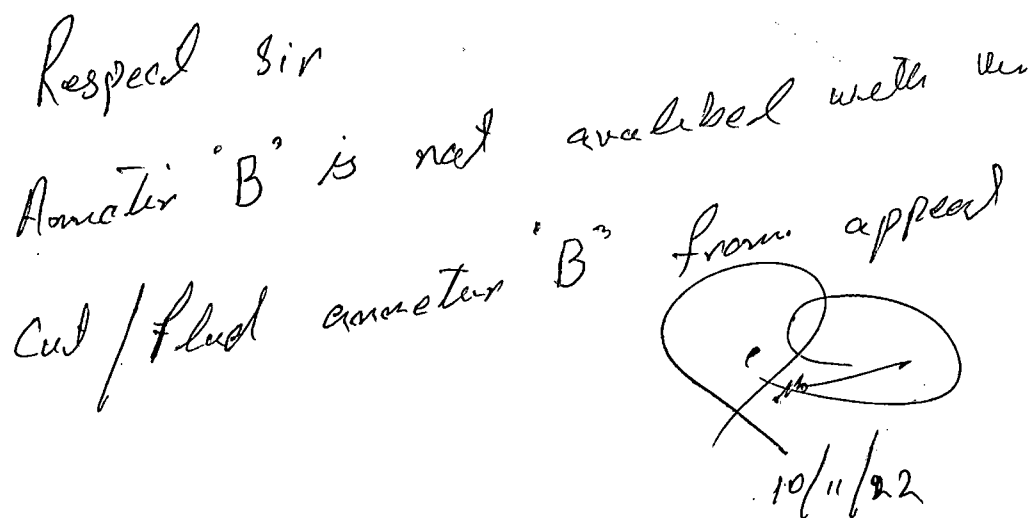 Respecd Sir
Annexter "B" is not avalebel with
Cut / Flud annexter "B" from appeal
10/11/22